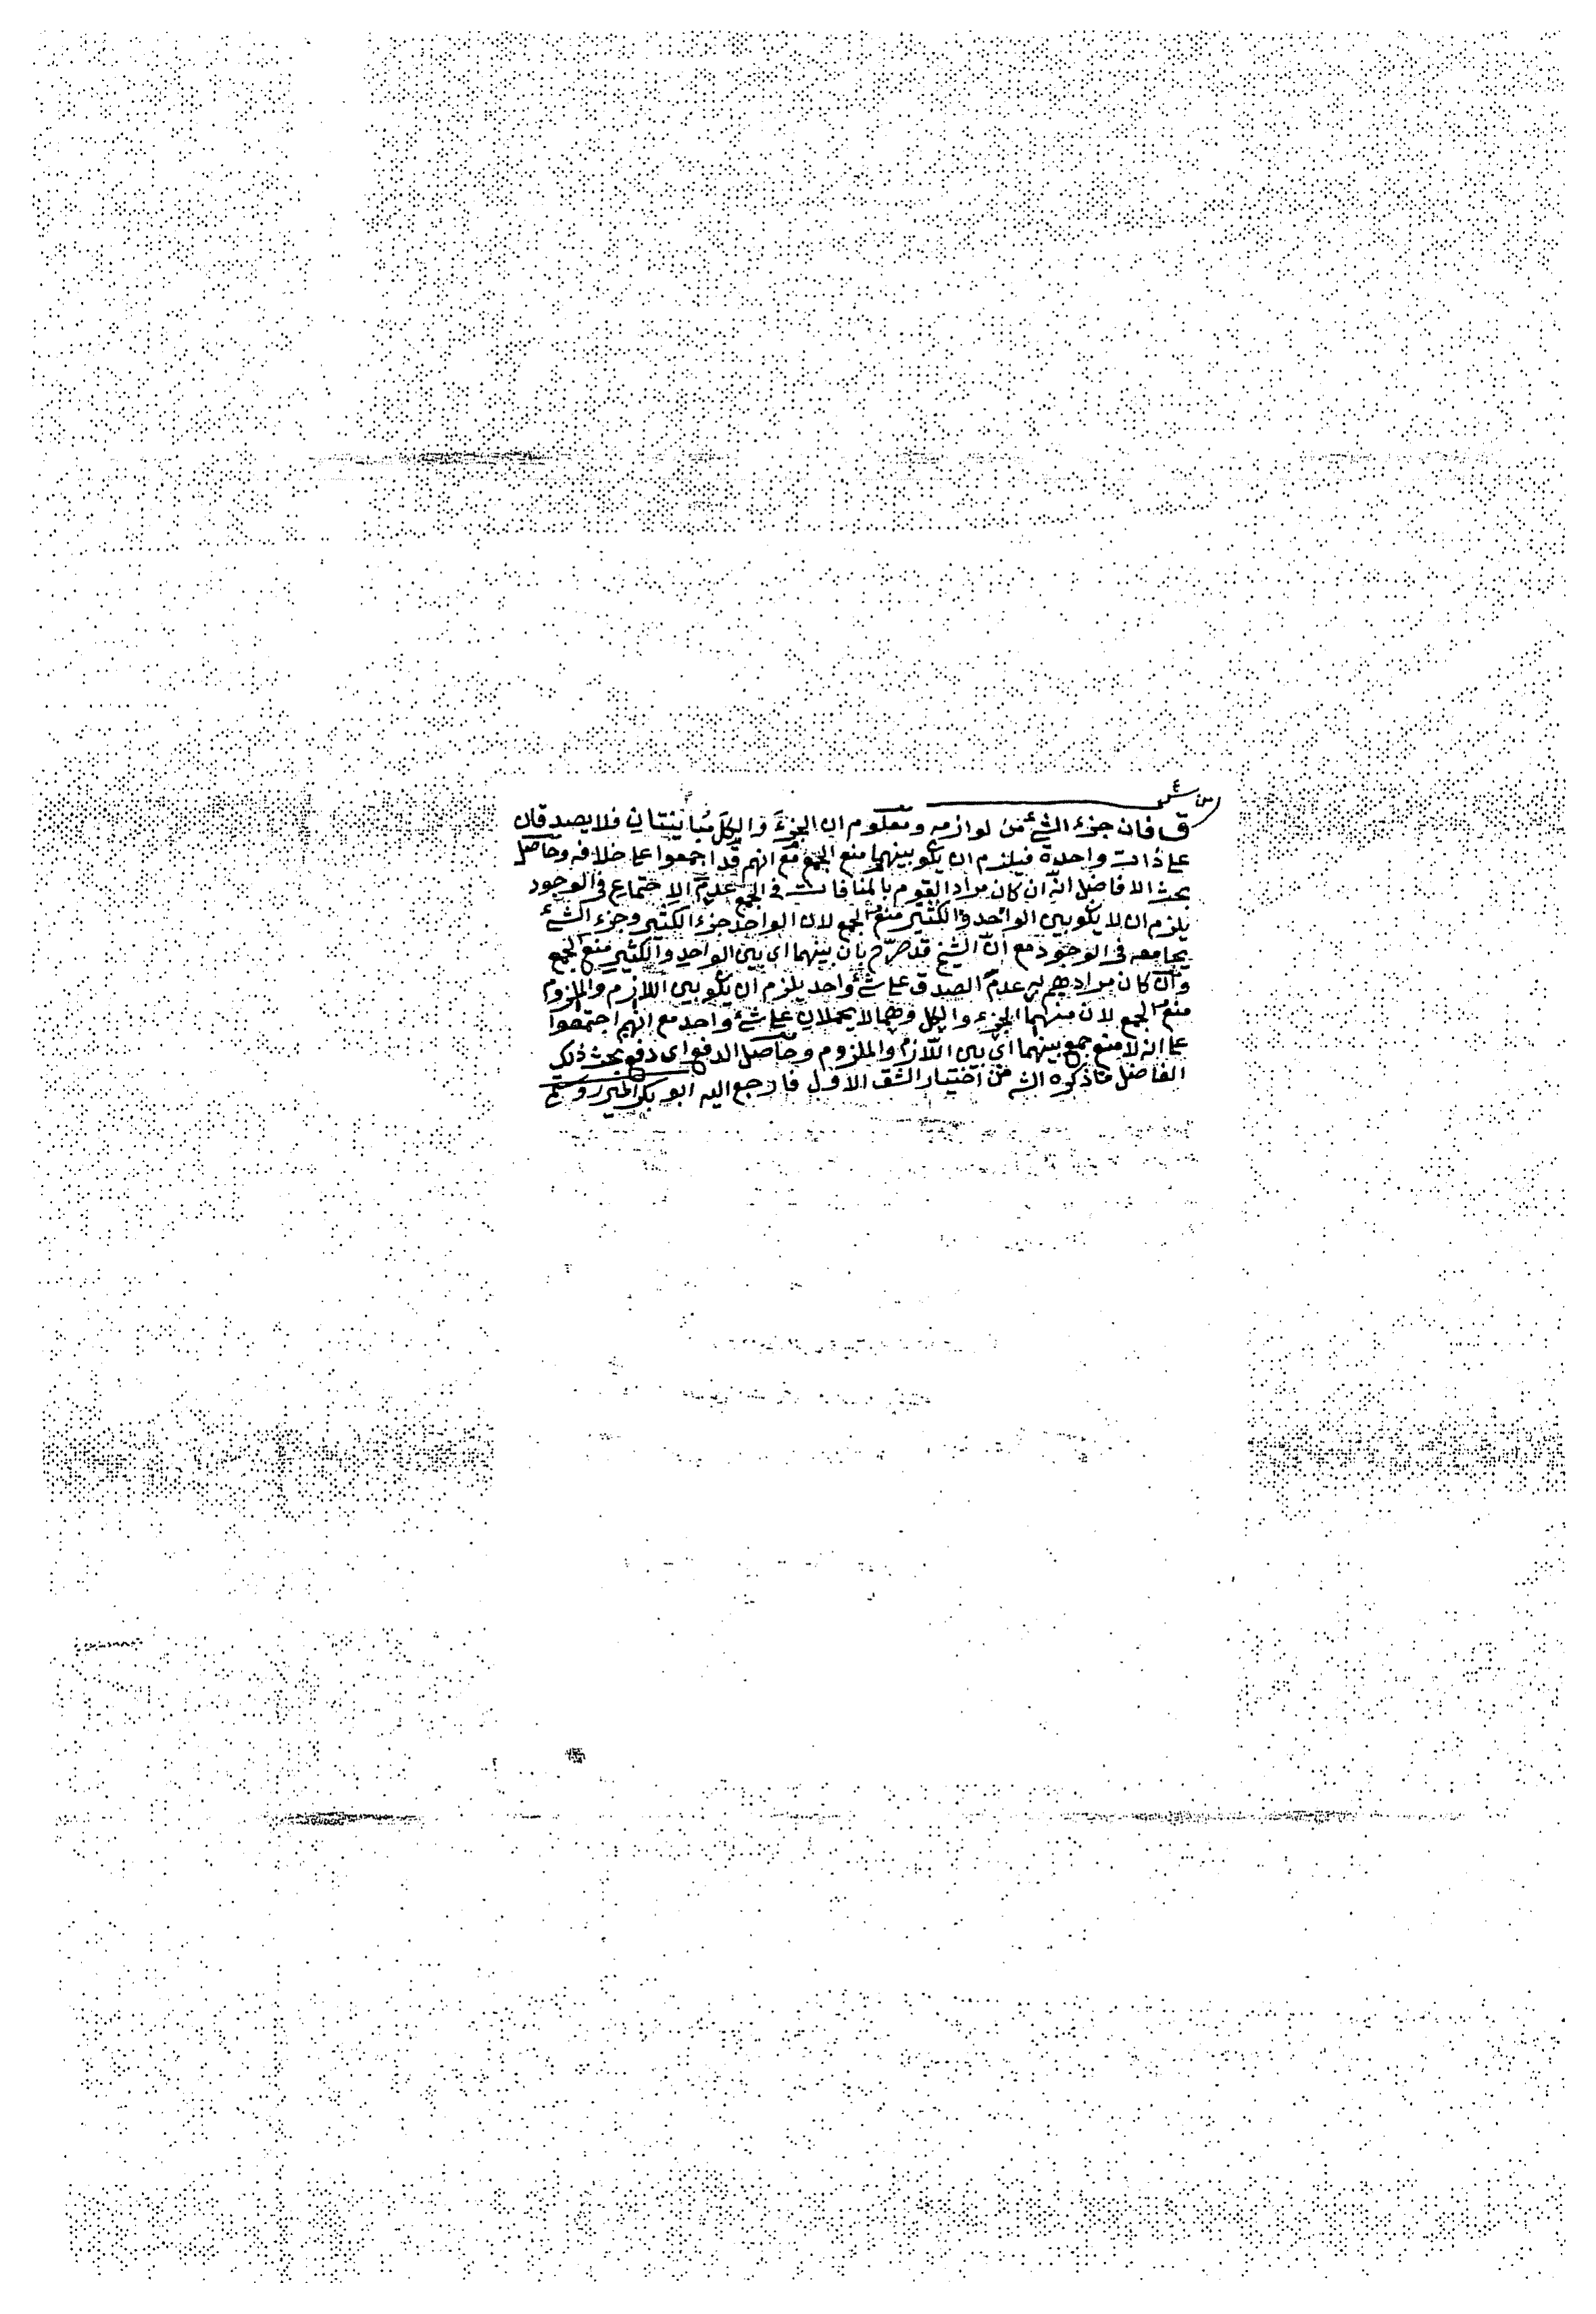 ق فان جزء الشئ من لوازمه ومعلوم ان الجزء والكل مباينتان فلا يصدقان
على ذات واحدة فيلزم ان يكو بينهما منع الجمع مع انهم قد اجمعوا على خلافه وحاصل
بحث الافاضل انه ان كان مراد القوم بالمنافات فى الجمع عدم الاجتماع فى الوجود
يلزم ان لا يكو بين الواحد والكثير منع الجمع لان الواحد جزء الكثير وجزء الشئ
يجامعه فى الوجود مع ان الشيخ قد صرّح بان بينهما اى بين الواحد والكثير منع الجمع
وان كان مرادهم به عدم الصدق على شئ واحد يلزم ان يكو بين اللازم والملزوم
منع الجمع لان منهما الجزء والكل وهما لا يحملان على شئ واحد مع انهم اجتمعوا
على انه لا منع جمع بينهما اى بين اللازم والملزوم وحاصل الدفع اى دفع بحث ذلك
الفاضل ما ذكره الشـ من اختيار الشق الاول فارجع اليه ابو بكر